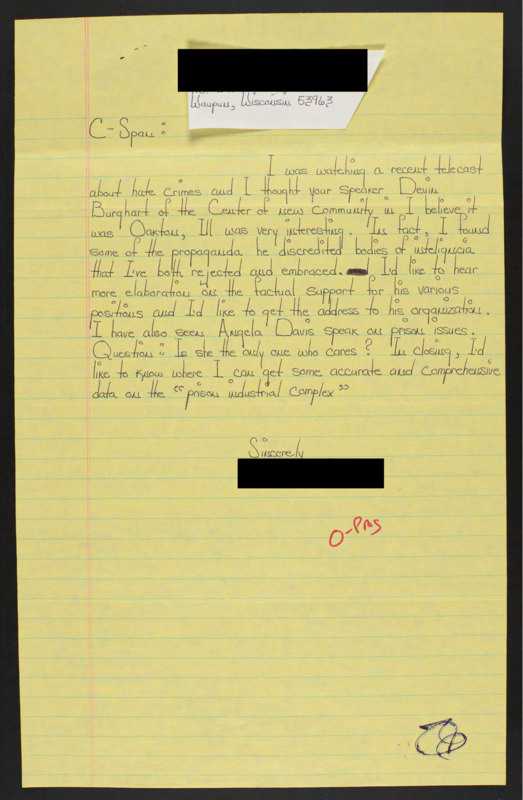 Waupun, Wisconsin 53963
C-Span:
I was watching a recent telecast
about hate crimes and I thought your speaker Devin
Burghart of the Center of new Community in I believe it
was Oakton, Ill was very interesting. In fact, I found
some of the propaganda he discredited bodies of inteligncia
that I've both rejected and embraced. I'd like to hear
more elaboration on the factual support for his various
positions and I'd like to get the address to his organization.
I have also seen Angela Davis speak on prison issues.
Question: Is she the only one who cares? In closing, I'd
like to know where I can get some accurate and comprehensive
data on the "prison industrial complex"
Sincerely
O-Pros